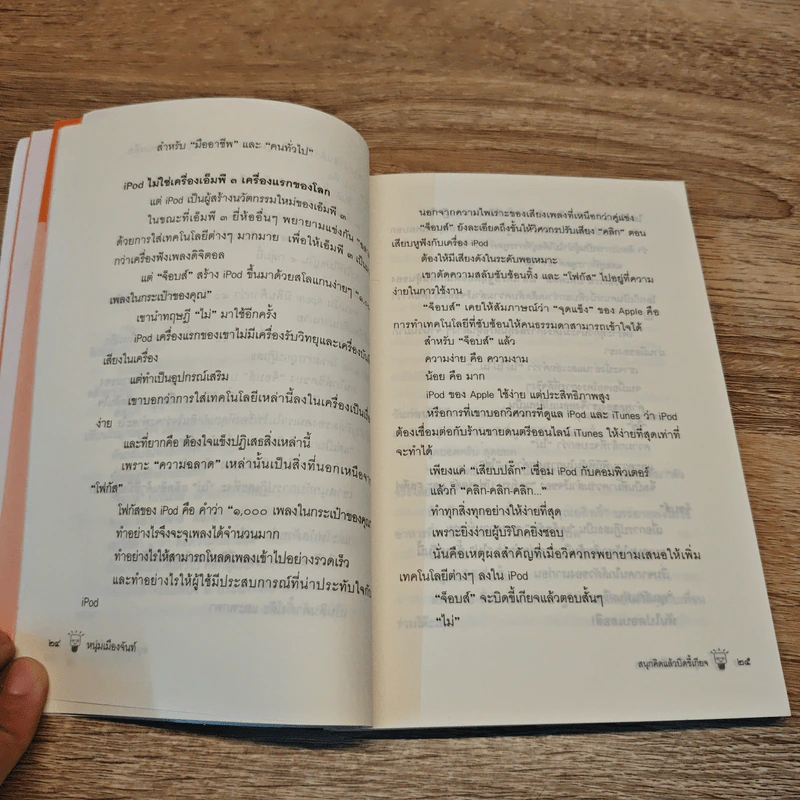 สำหรับ "มืออาชีพ" และ "คนทั่วไป"
iPod ไม่ใช่เครื่องเอ็มพี ๓ เครื่องแรกของโลก
แต่ iPod เป็นผู้สร้างนวัตกรรมใหม่ของเอ็มพี ๓
ในขณะที่เอ็มพี ๓ ยี่ห้ออื่นๆ พยายามแข่งกัน
ด้วยการใส่เทคโนโลยีต่างๆ มากมาย เพื่อให้เอ็มพี ๓
กว่าเครื่องฟังเพลงดิจิตอล
แต่ "จ็อบส์" สร้าง iPod ขึ้นมาด้วยสโลแกนง่ายๆ "๑,๐๐๐
เพลงในกระเป๋าของคุณ"
เขานำทฤษฎี "ไม่" มาใช้อีกครั้ง
iPod เครื่องแรกของเขาไม่มีเครื่องรับวิทยุและเครื่อง
เสียงในเครื่อง
แต่ทำเป็นอุปกรณ์เสริม
เขาบอกว่าการใส่เทคโนโลยีเหล่านี้ลงในเครื่องเป็น
ง่าย
และที่ยากคือ ต้องใจแข็งปฏิเสธสิ่งเหล่านี้
เพราะ "ความฉลาด" เหล่านั้นเป็นสิ่งที่นอกเหนือจาก
"โฟกัส"
โฟกัสของ iPod คือ คำว่า "๑,๐๐๐ เพลงในกระเป๋าของคุณ"
ทำอย่างไรจึงจะจุเพลงได้จำนวนมาก
ทำอย่างไรให้สามารถโหลดเพลงเข้าไปอย่างรวดเร็ว
และทำอย่างไรให้ผู้ใช้มีประสบการณ์ที่น่าประทับใจกับ
iPod
๒๔ หนุ่มเมืองจันท์
นอกจากความไพเราะของเสียงเพลงที่เหนือกว่าคู่แข่ง
"จ็อบส์" ยังละเอียดถึงขั้นให้วิศวกรปรับเสียง "คลิก" ตอน
เสียบหูฟังกับเครื่อง iPod
ต้องให้มีเสียงดังในระดับพอเหมาะ
เขาตัดความสลับซับซ้อนทิ้ง และ "โฟกัส" ไปอยู่ที่ความ
ง่ายในการใช้งาน
"จ็อบส์" เคยให้สัมภาษณ์ว่า "จุดแข็ง" ของ Apple คือ
การทำเทคโนโลยีที่ซับซ้อนให้คนธรรมดาสามารถเข้าใจได้
สำหรับ "จ็อบส์" แล้ว
ความง่าย คือ ความงาม
น้อย คือ มาก
iPod ของ Apple ใช้ง่าย แต่ประสิทธิภาพสูง
หรือการที่เขาบอกวิศวกรที่ดูแล iPod และ iTunes ว่า iPod
ต้องเชื่อมต่อกับร้านขายดนตรีออนไลน์ iTunes ให้ง่ายที่สุดเท่าที่
จะทำได้
เพียงแค่ "เสียบปลั๊ก" เชื่อม iPod กับคอมพิวเตอร์
แล้วก็ "คลิก-คลิก-คลิก..."
ทำทุกสิ่งทุกอย่างให้ง่ายที่สุด
เพราะยิ่งง่ายผู้บริโภคยิ่งชอบ
นั่นคือเหตุผลสำคัญที่เมื่อวิศวกรพยายามเสนอให้เพิ่ม
เทคโนโลยีต่างๆ ลงใน iPod
"จ็อบส์" จะบิดขี้เกียจแล้วตอบสั้นๆ
"ไม่"
สนุกคิดแล้วบิดขี้เกียจ ๒๕